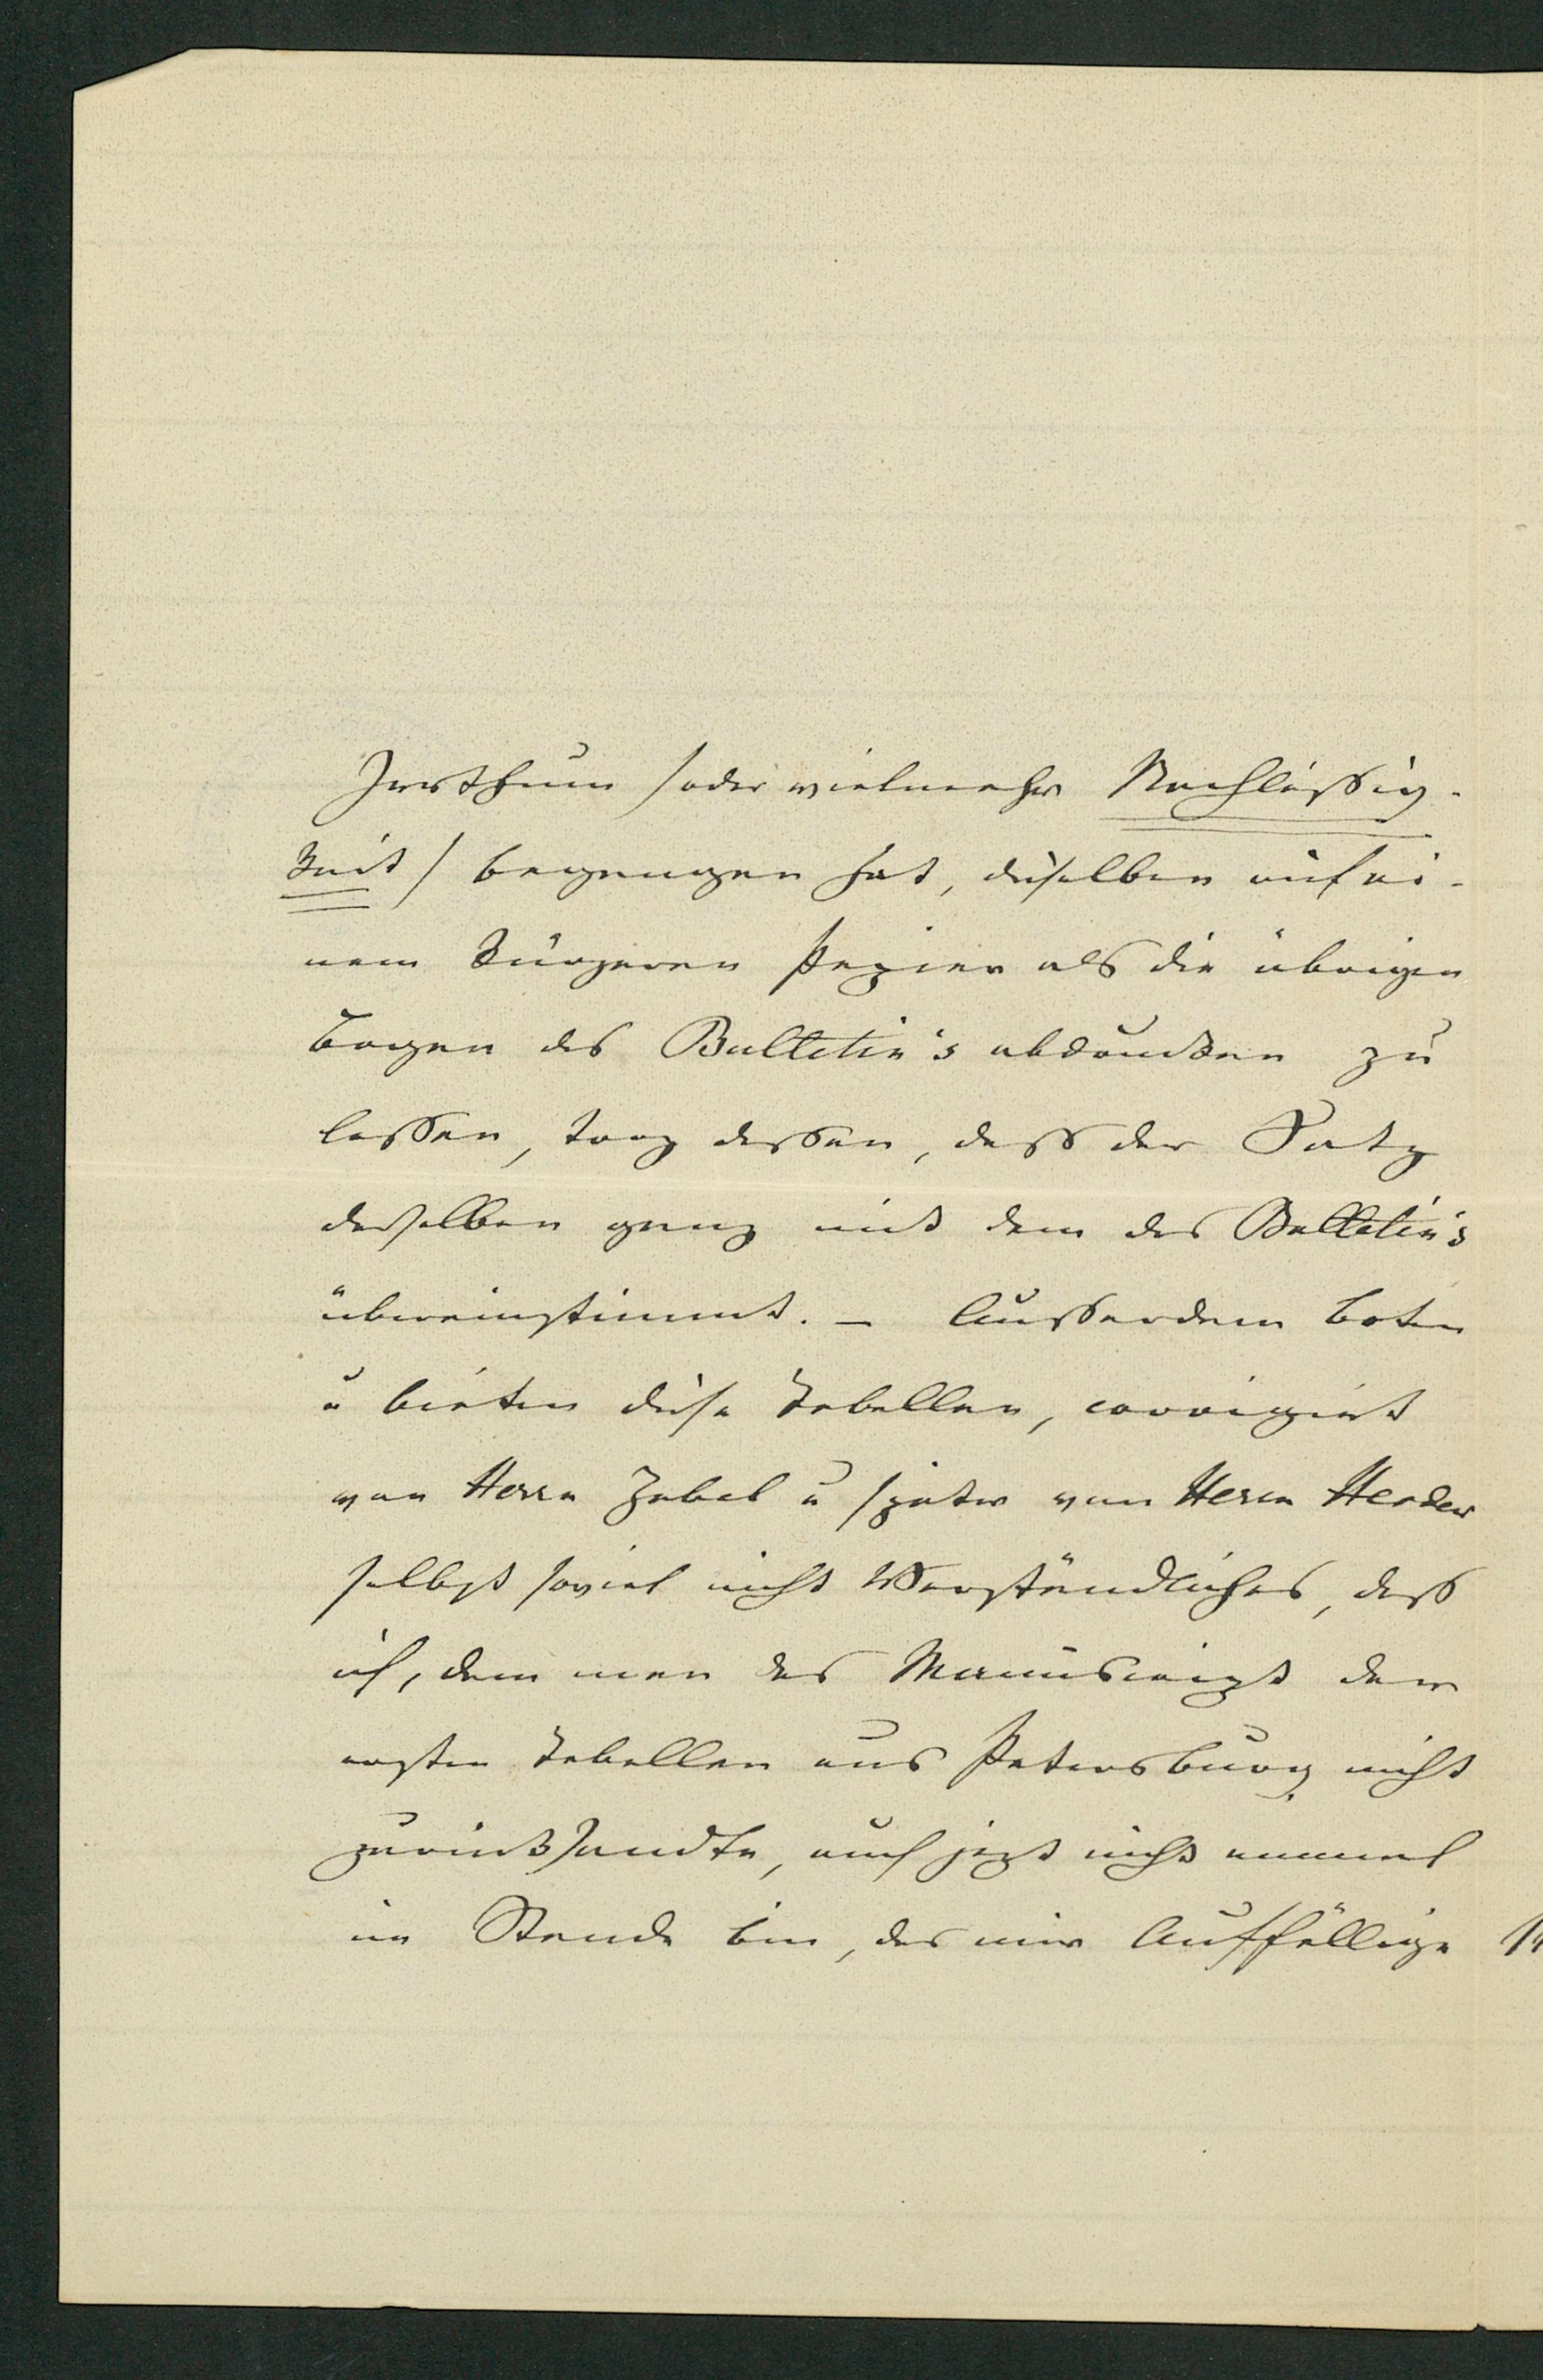 Irrthum /oder vielmehr Nachlässig-
keit/ begangen hat, dieselben auf ei-
nem kürzeren Papier als die übrigen
Bogen des Bulletin's abdrucken zu
lassen, troz dessen, dass der Satz
derselben ganz mit dem des Bulletin's
übereinstimmt. – Ausserdem boten
u bieten diese Tabellen, corrigirt
von Herrn Zabel u später von Herrn Herder
selbst soviel nicht Verständliches, dass
ich, dem man das Manuscript der
ersten Tabellen aus Petersburg nicht
zurücksandte, auch jezt nicht einmal
im Stande bin, das mir Auffällige